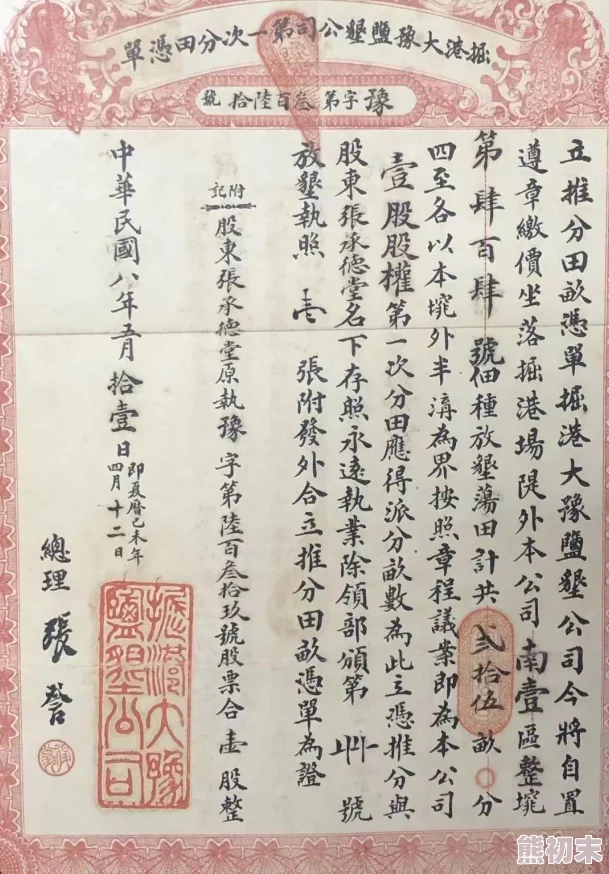 掘港大豫鹽墾公司第一次分田憑單
豫字第叁百陸拾號
立推分田畝憑單掘港大豫鹽墾公司今將自置
遵章繳價坐落掘港場隄外本公司南壹區整𡑞
第肆百肆號佃種放墾蕩田計共弍拾伍畝〇分
四至各以本𡑞外半溝為界按照章程議業即為本公司
壹股股權第一次分田應得派分畝數為此立憑推分與
股東張承德堂名下存照永遠執業除領部頒第卌號
放墾執照壱張附發外合立推分田畝憑單為證
附記
股東張承德堂原執豫字第陸百叁拾玖號股票合壹股整
中華民國八年五月拾壹日即夏曆己未年四月十二日
總理張詧
掘港大豫鹽墾公司
熊初末